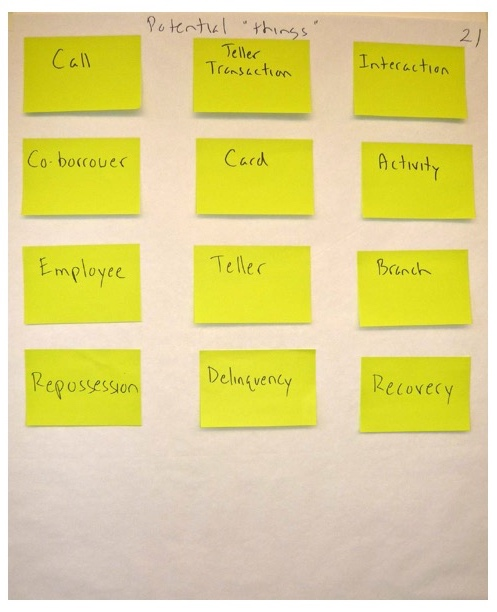 Potential "things"
21
Call
Teller
Transaction
Interaction
Co-borrower
Card
Activity
Employee
Teller
Branch
Repossession
Delinquency
Recovery